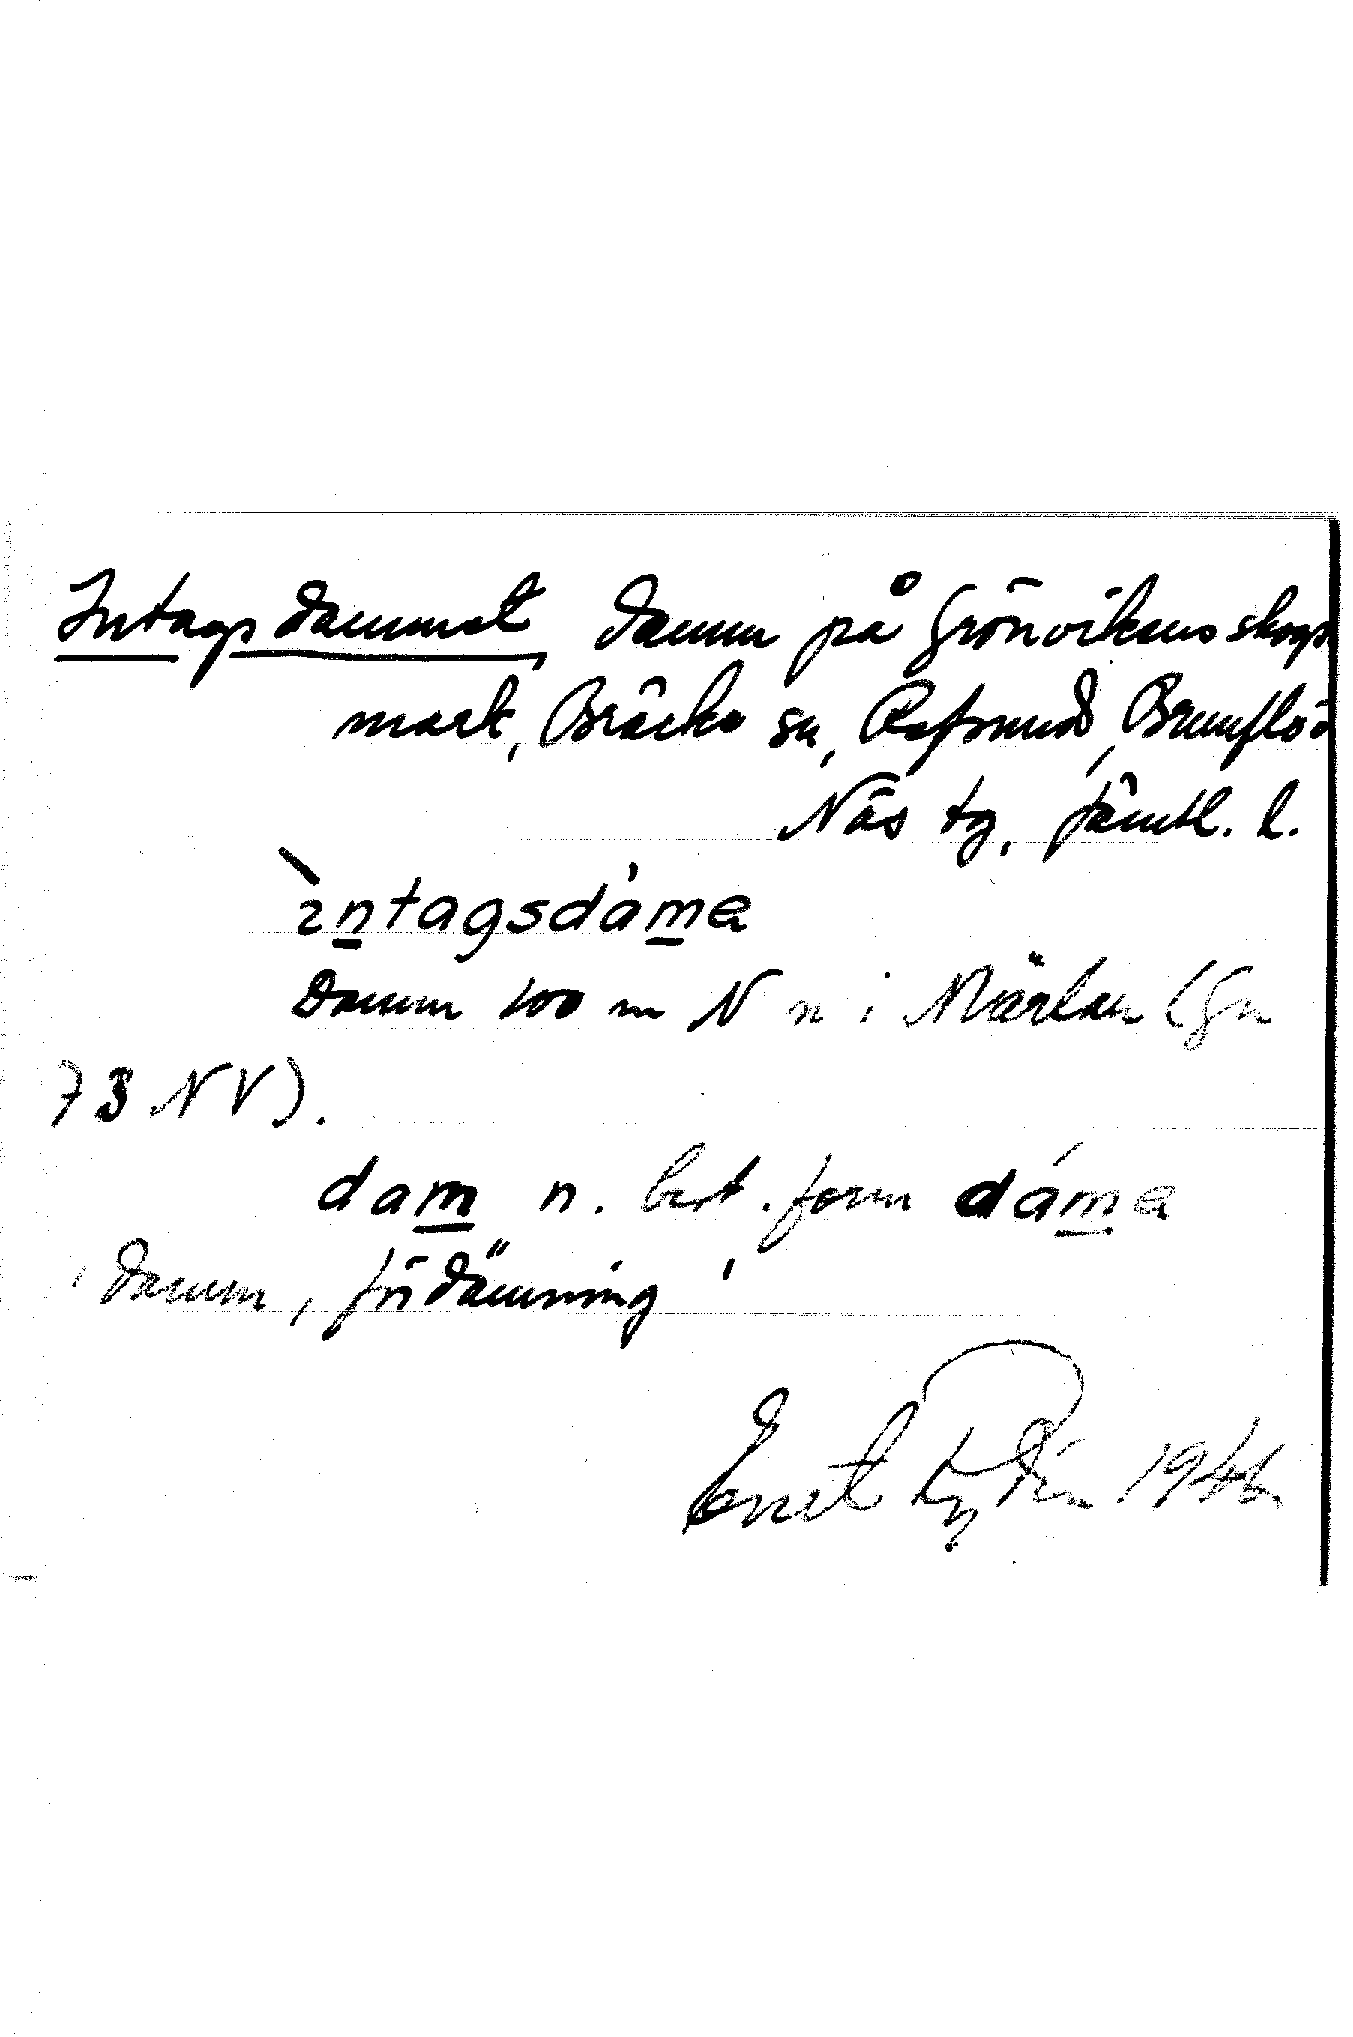 Intagsdammet, damm på Grönvikens skogs
mark, Bräcke sn, Refsund, Brunflo o
Näs tg, Jämtl. l.
ìntagsdáma
Damm 100 m N n i Märlan (Gn
73 NV).
dam n. best. form dáma
'damm, fördämning'
Lydin 1946.